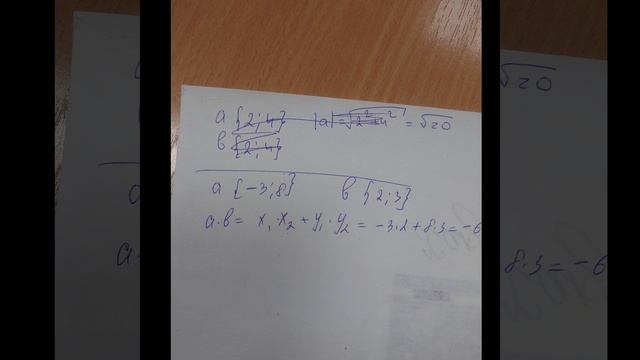 a {2; 4} |a| = √2² + 4² = √20
в {2; 4}
a {-3; 8} в {2; 3}
a · в = x₁ · x₂ + y₁ · y₂ = -3 · 2 + 8 · 3 = -6
√20
8 · 3 = -6
a ·